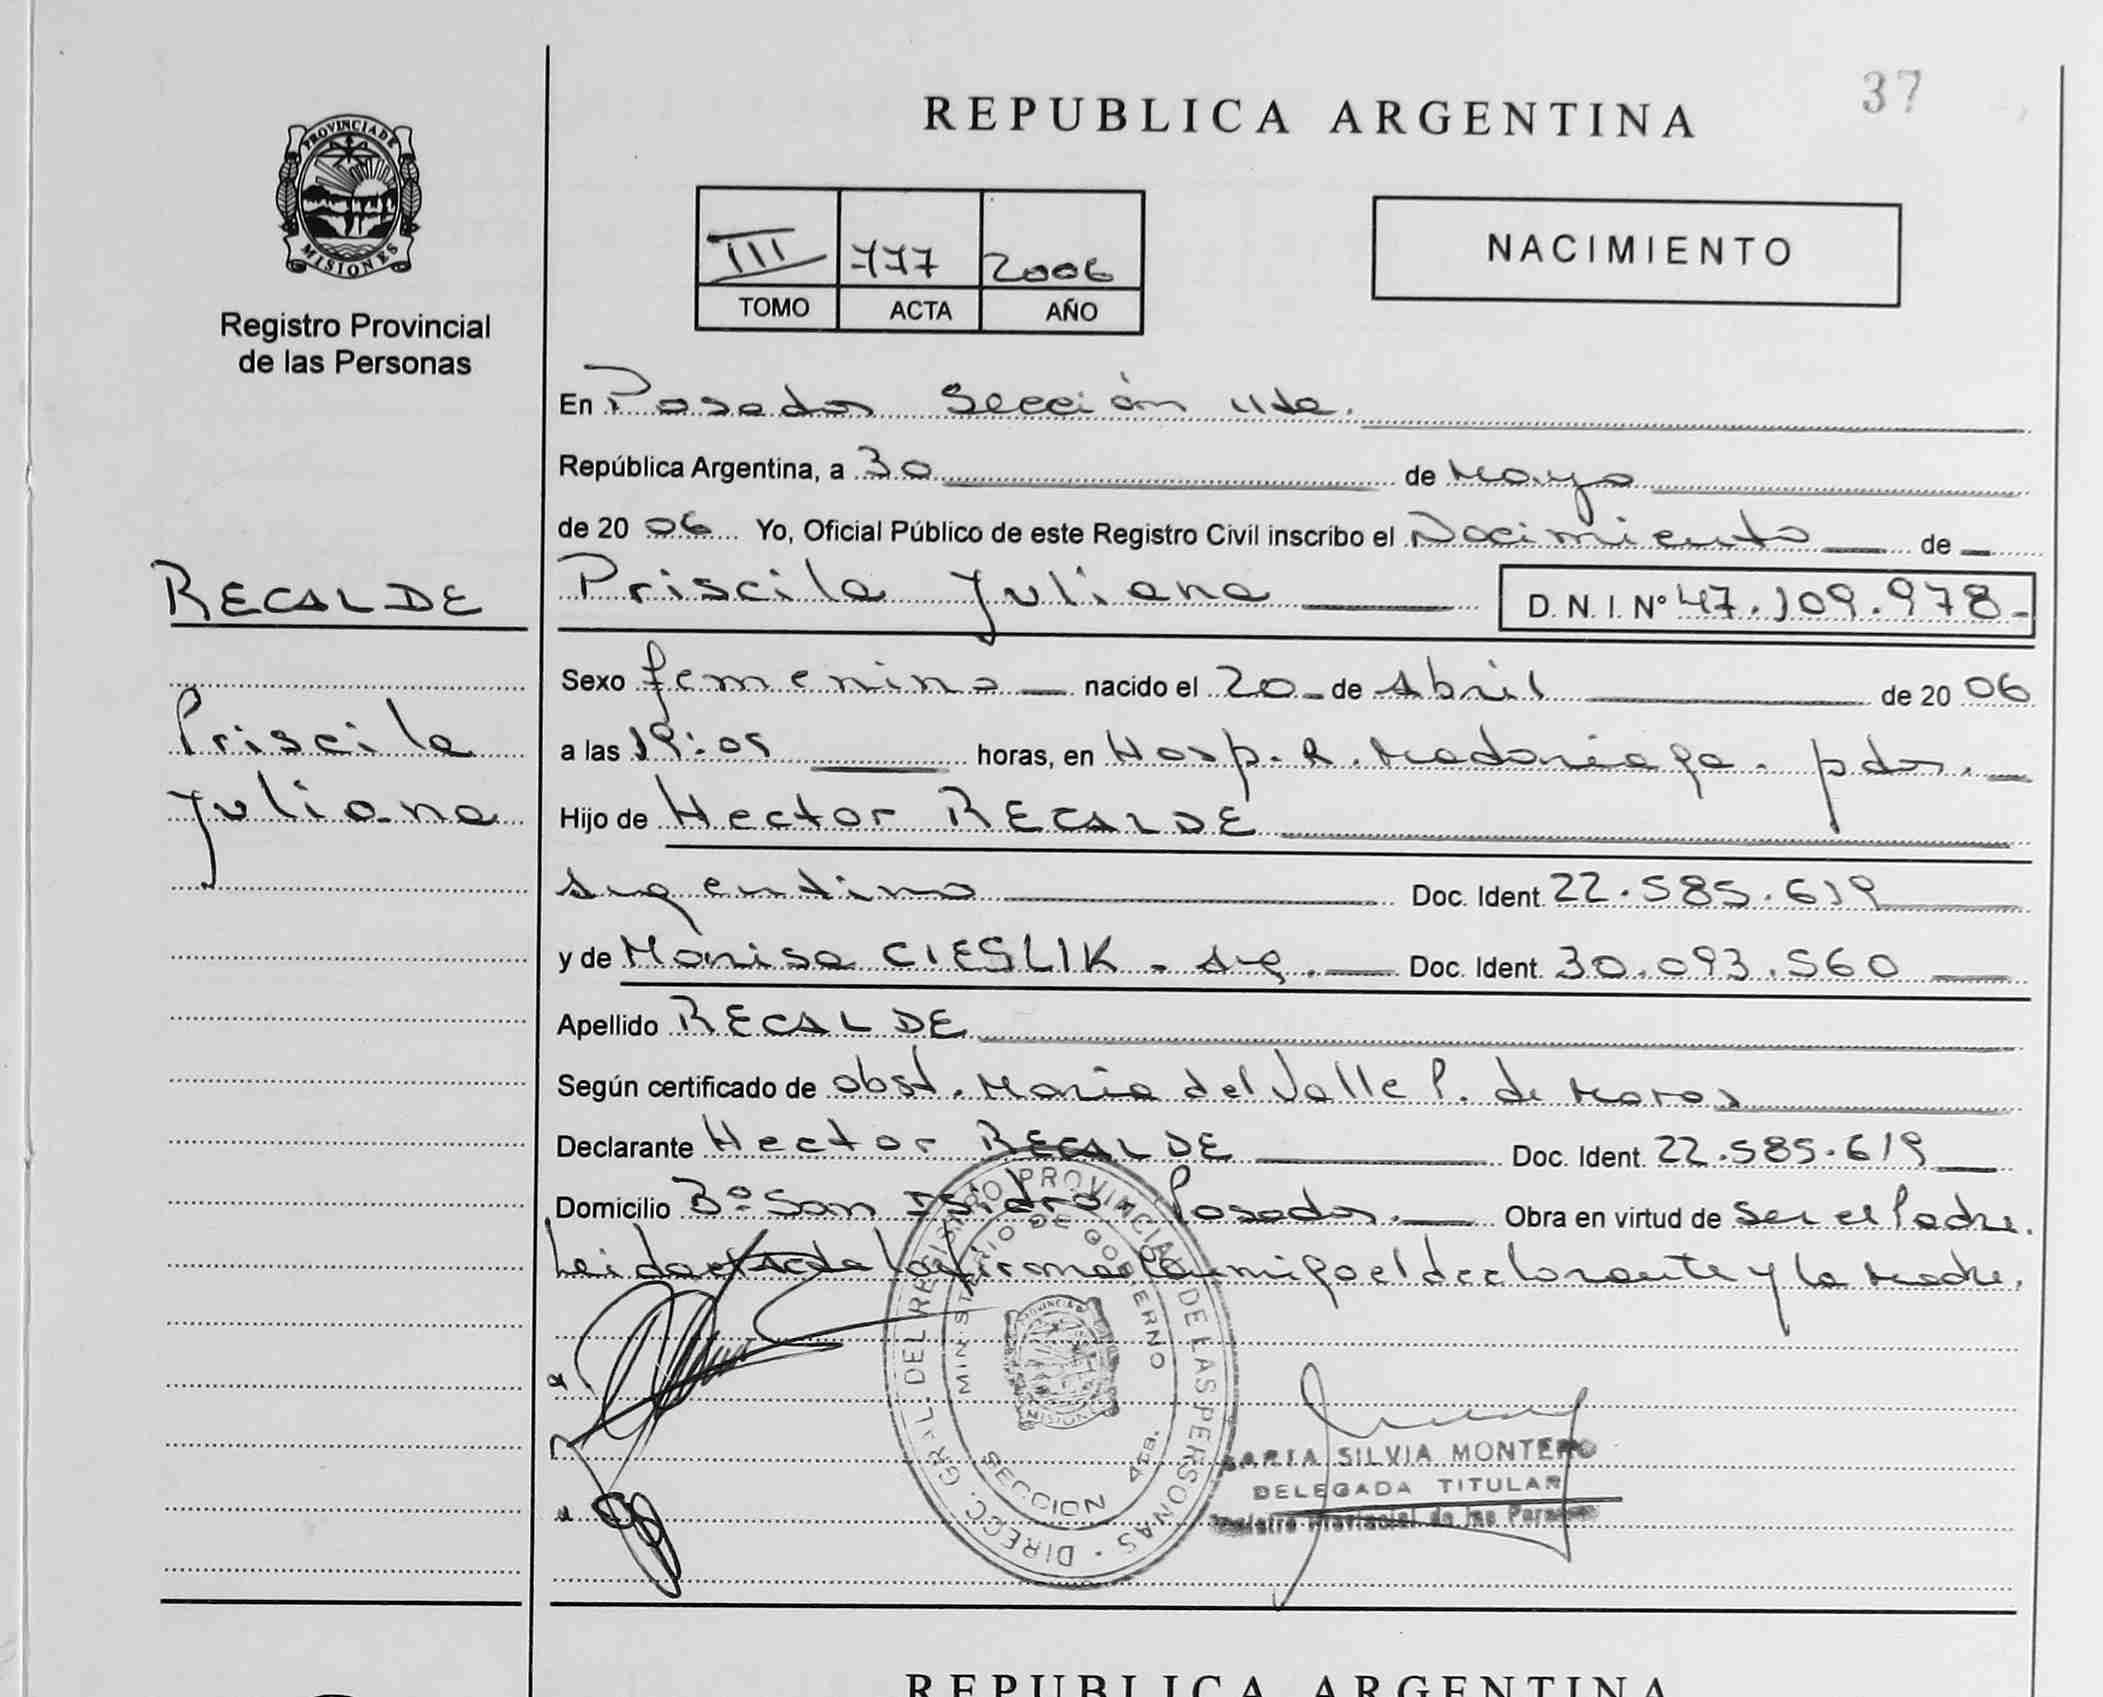 37
REPUBLICA ARGENTINA
PROVINCIA DE
MISIONES
Registro Provincial
de las Personas
III 777 2006
TOMO ACTA AÑO
NACIMIENTO
En Posadas Sección 4ta.
República Argentina, a 30 de Mayo
de 20 06 Yo, Oficial Público de este Registro Civil inscribo el Nacimiento de
RECALDE
Priscila Juliana D. N. I. Nº 47.109.978-
Sexo femenino nacido el 20 de Abril de 20 06
Priscila
Juliana
a las 19:05 horas, en Hosp. R. Madariaga. pdas.
Hijo de Hector RECALDE
argentino Doc. Ident. 22.585.619
y de Marisa CIESLIK - arg. Doc. Ident. 30.093.560
Apellido RECALDE
Según certificado de obst. Maria del Valle P. de
Declarante Hector RECALDE Doc. Ident. 22.585.619
Domicilio Bº San Isidro - Posadas. Obra en virtud de ser el Padre.
Leida el Acta la firman conmigo el declarante y la Madre.
DIRECC. GRAL. DEL REGISTRO PROVINCIAL DE LAS PERSONAS
MINISTERIO DE GOBIERNO
PROVINCIA DE
MISIONES
SECCION 4ta.
MARIA SILVIA MONTERO
DELEGADA TITULAR
Registro Provincial de las Personas
REPUBLICA ARGENTINA